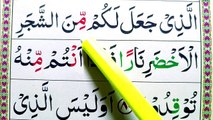 الَّذِیْ جَعَلَ لَكُمْ مِّنَ الشَّجَرِ
الْاَخْضَرِ نَارًا فَاِذَاۤ اَنْتُمْ مِّنْهُ
تُوْقِدُوْنَ ۸۰ اَوَلَیْسَ الَّذِیْ